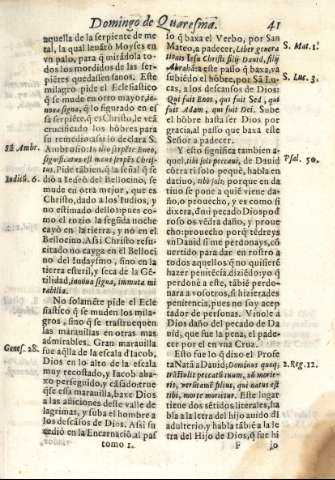 Domingo de Quaresma. 41
aquella de la serpiente de me
tal, la qual leuãtò Moyses en
vn palo, para q̃ mirãdola to-
dos los mordidos de las ser-
piẽtes quedassen sanos. Este
milagro pide el Eclesiastico
q̃ se mude en otro mayor, ie
noua signa, q̃ lo figurado en el
sa serpiẽte, q̃ es Christo, le vea
crucificado los hõbres para
su remedio: assi lo declara S.
Ambrosio: In illo serpẽte æneo,
significatus est meus serpẽs Chris-
tus. Pide tãbien, q̃ la señal q̃ se
diò a Gedeõ del Bellocino, se
mude en otra mejor, que es
Christo, dado a los Iudios, y
no estimado dellos: pues co-
mo el rozio la segũda noche
cayò en la tierra, y no en el
Bellocino. Assi Christo resu-
citado no cayga en el Belloci
no del Iudaysmo, sino en la
tierra esteril, y seca de la Gẽ-
tilidad, innoua signa, immuta mi
rabilia.
No solamẽte pide el Ecle
siastico q̃ se muden los mila-
gros, sino q̃ se trastruequen
las marauillas en otras mas
admirables. Gran marauilla
fue aq̃lla de la escala d̃ Iacob,
Dios en lo alto de la escala
muy recostado, y Iacob aba-
xo perseguido, y cãsado: true
q̃se essa marauilla, baxe Dios
a las afliciones deste valle de
lagrimas, y suba el hombre a
los descãsos de Dios. Assi su
cediò en la Encarnaciõ, al pas
tomo 1.
so q̃ baxa el Verbo, por San
Mateo, a padecer, Liber genera
tionis Iesu Christi filij Dauid, filij
Abrahã: a este passo q̃ baxa, va
subiẽdo el hõbre, por Sã Lu-
cas, a los descansos de Dios:
Qui fuit Enos, qui fuit Sed, qui
fuit Adam, qui fuit Dei. Sube
el hõbre hasta ser Dios por
gracia, al passo que baxa este
Señor a padecer.
Y esto significa tambien a-
quel, tibi soli peccaui, de Dauid
cõtra ti solo pequè, habla en
datiuo, tibi soli; porque en da
tiuo se pone a quiẽ viene da-
ño, o prouecho, y es como si
dixera, õni pecado Dios po de
roso os vẽdra daño, y proue
cho: prouecho porq̃ tẽdreys
en Dauid si me perdonays, cõ
uertido para dar en rostro a
todos aquellos q̃ no quisierẽ
hazer penitẽcia, diziẽdo: yo q̃
perdonè a este, tãbiẽ perdo-
nara a vosotros, si hizierades
penitencia, pues no soy acep
tador de personas. Vinole a
Dios daño del pecado de Da
uid, que fue la pena, el pade-
cer por el en vna Cruz.
Esto fue lo q̃ dixo el Profe
ta Natã a Dauid; Dominus quoq;
trãstulit peccatũ tuum, nõ morie-
ris, verũtamẽ filius, qui natus est
tibi, morte morietur. Este lugar
tiene dos sẽtidos literales, ha
bla a la letra del hijo auido d̃l
adulterio, y habla tãbiẽ a la le
tra del Hijo de Dios, q̃ fue hi
F jo
Sã Ambr.
Iudicũ. 6.
Genes. 28.
S. Mat. 1.
S. Luc. 3.
Psal. 50.
2. Reg. 12.